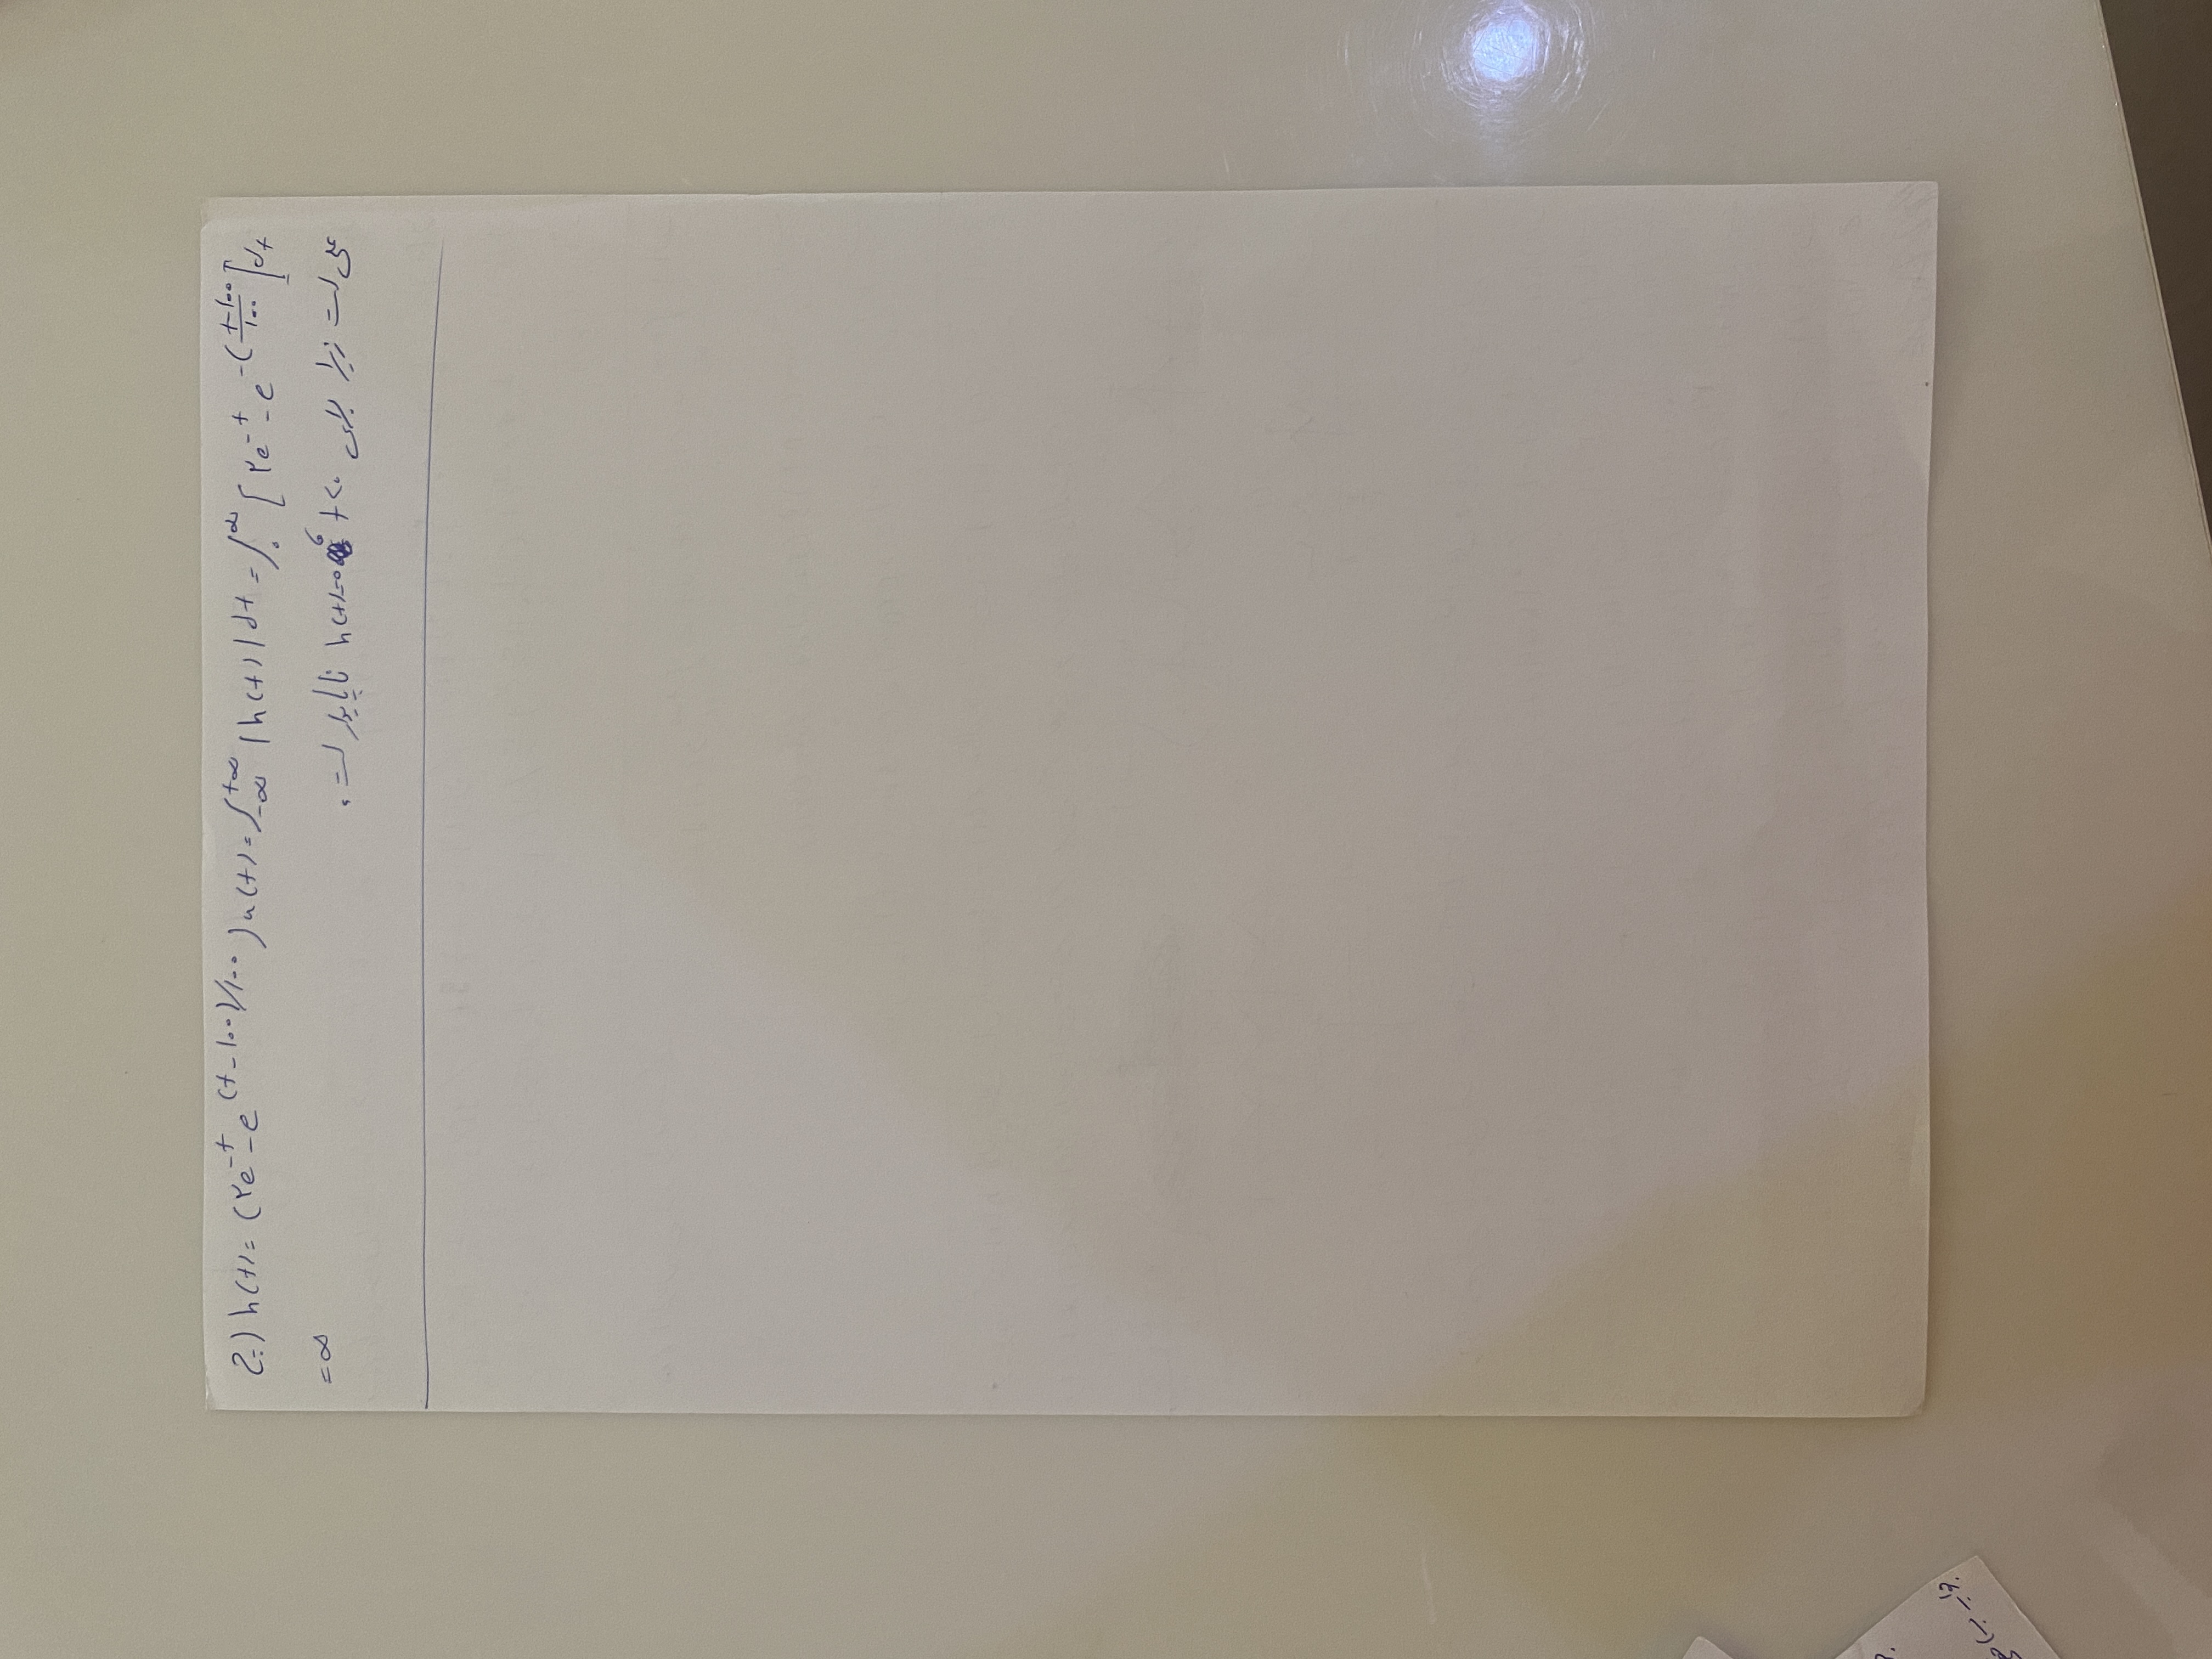 ج) h(t) = (۲e^-t - e^(t-۱۰۰)/۱۰۰) u(t) = ∫_-∞^+∞ |h(t)| dt = ∫_۰^∞ [۲e^-t - e^-(t-۱۰۰/۱۰۰)] dt
= ∞
علی است زیرا برای t<۰ h(t)=0، ناپایدار است.